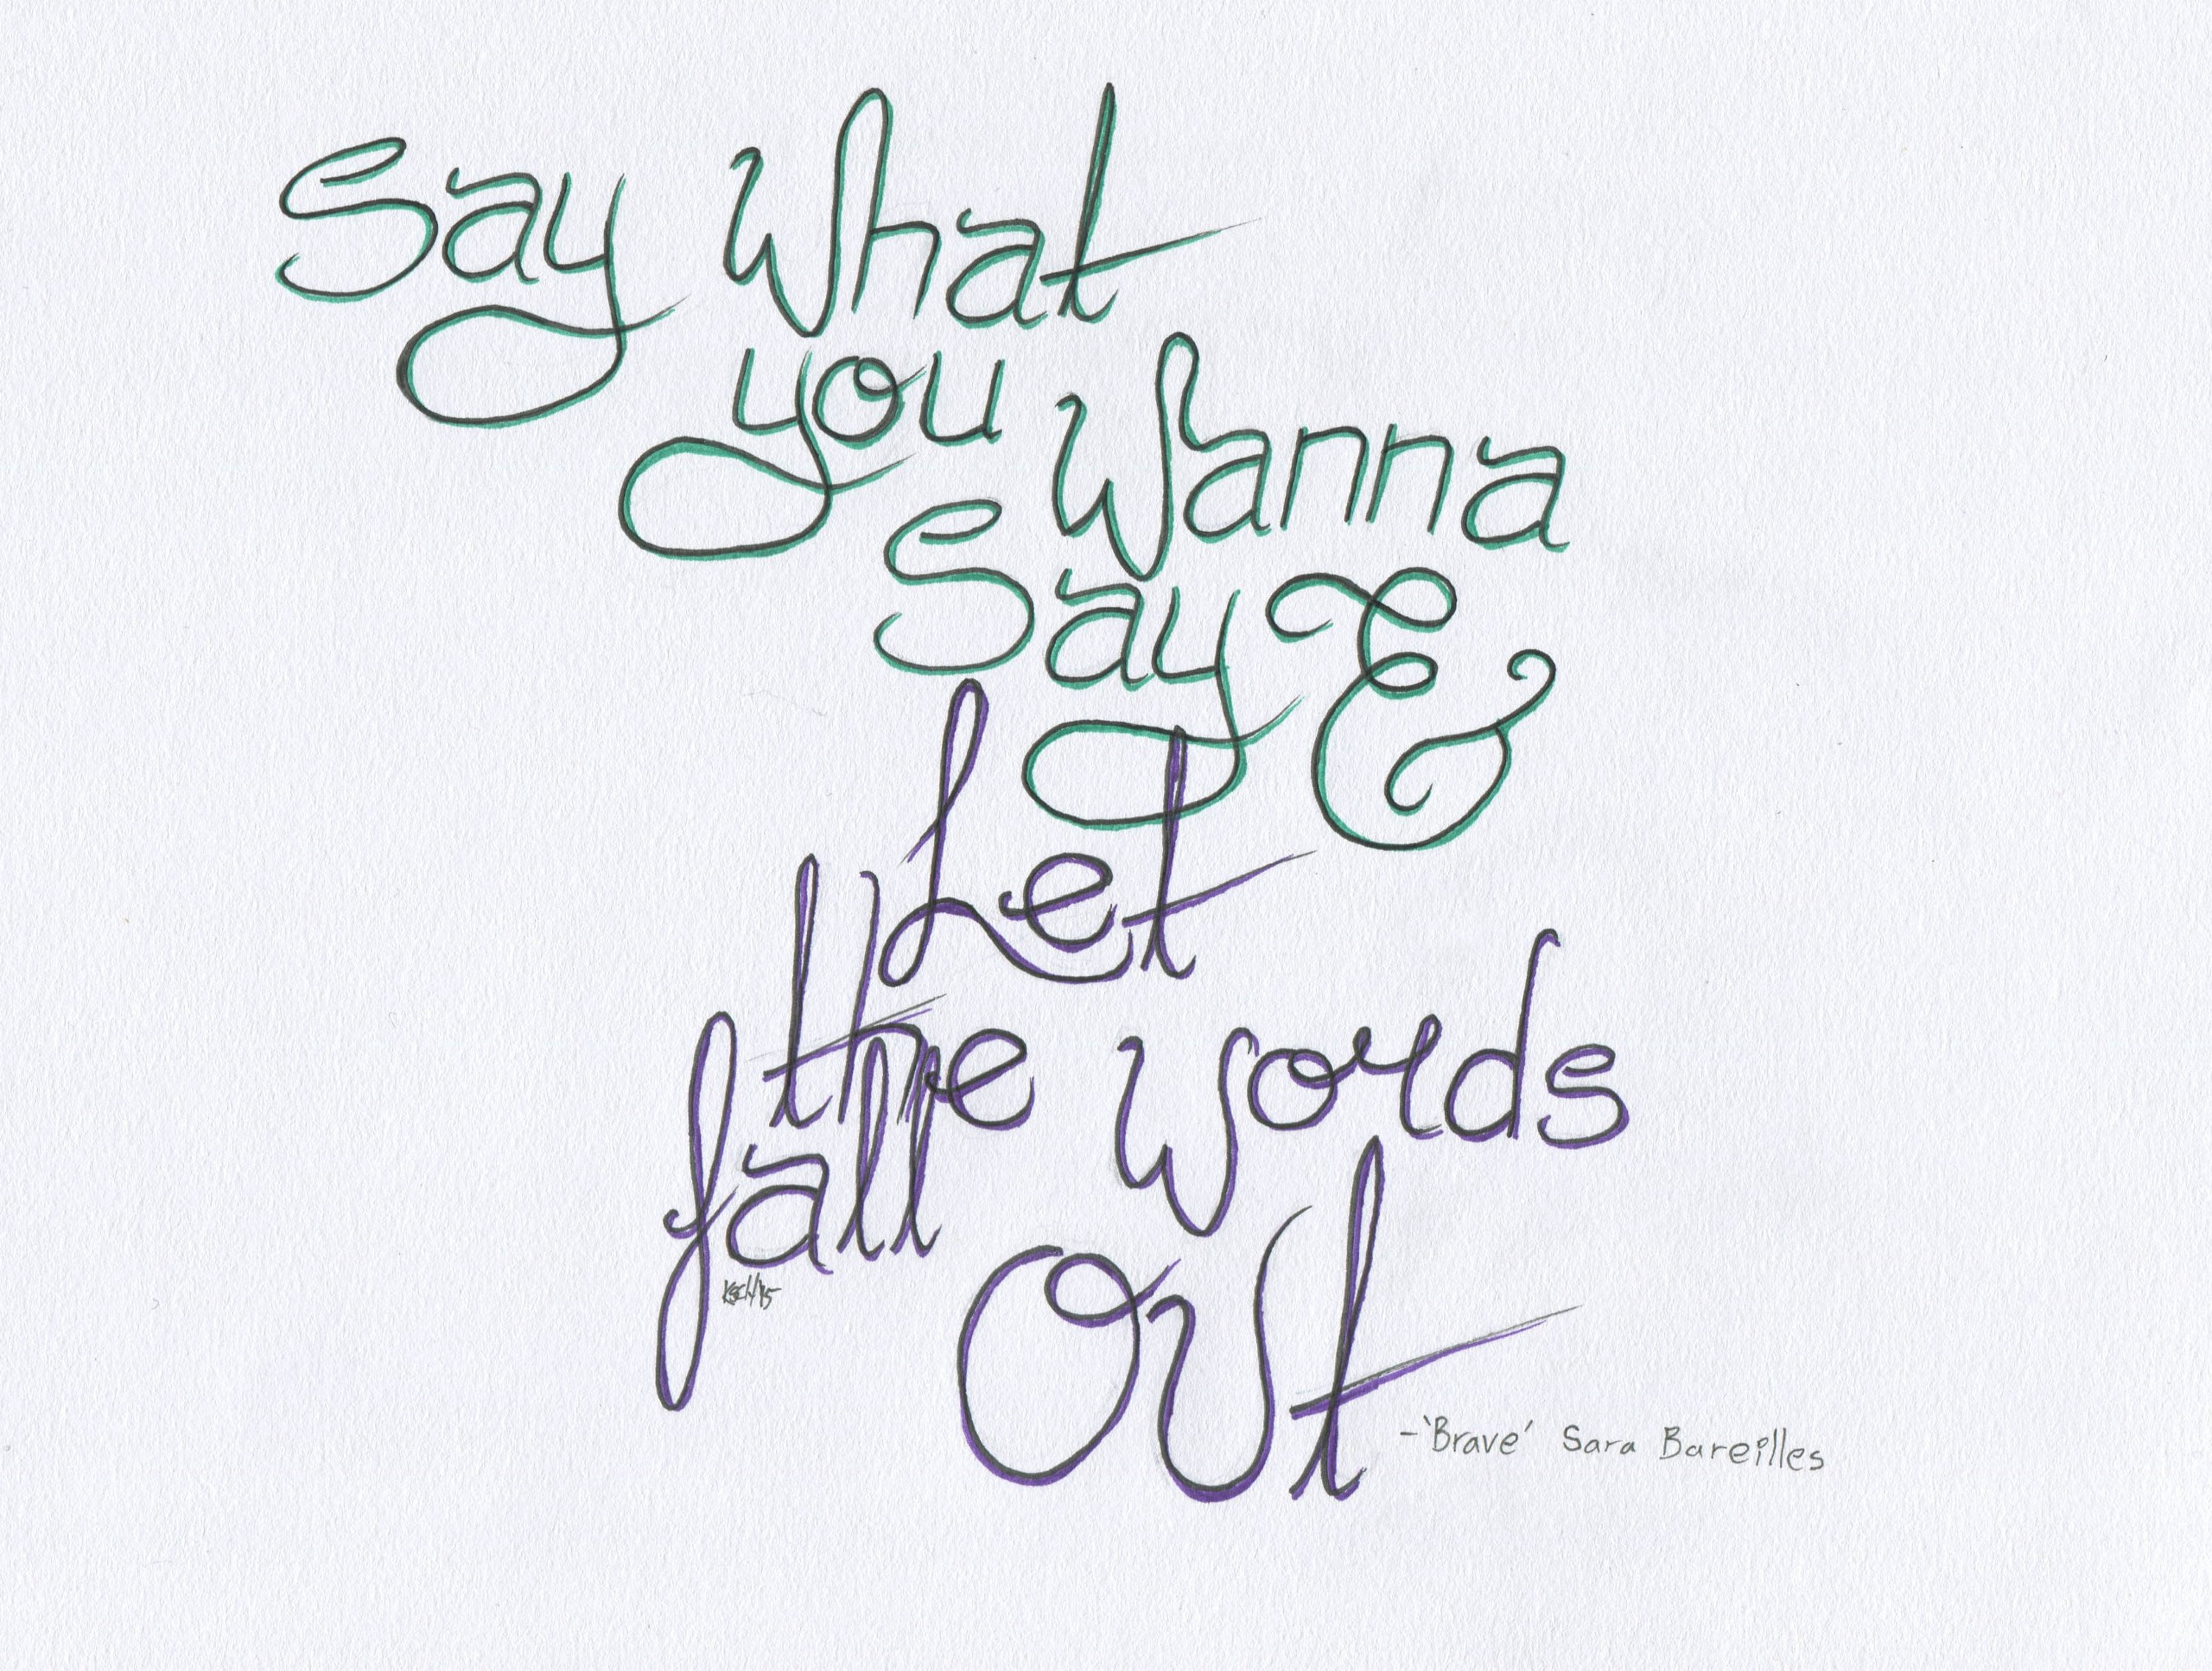 Say What
you Wanna
Say &
Let
the words
fall
Out
KSCH/15
-'Brave' Sara Bareilles